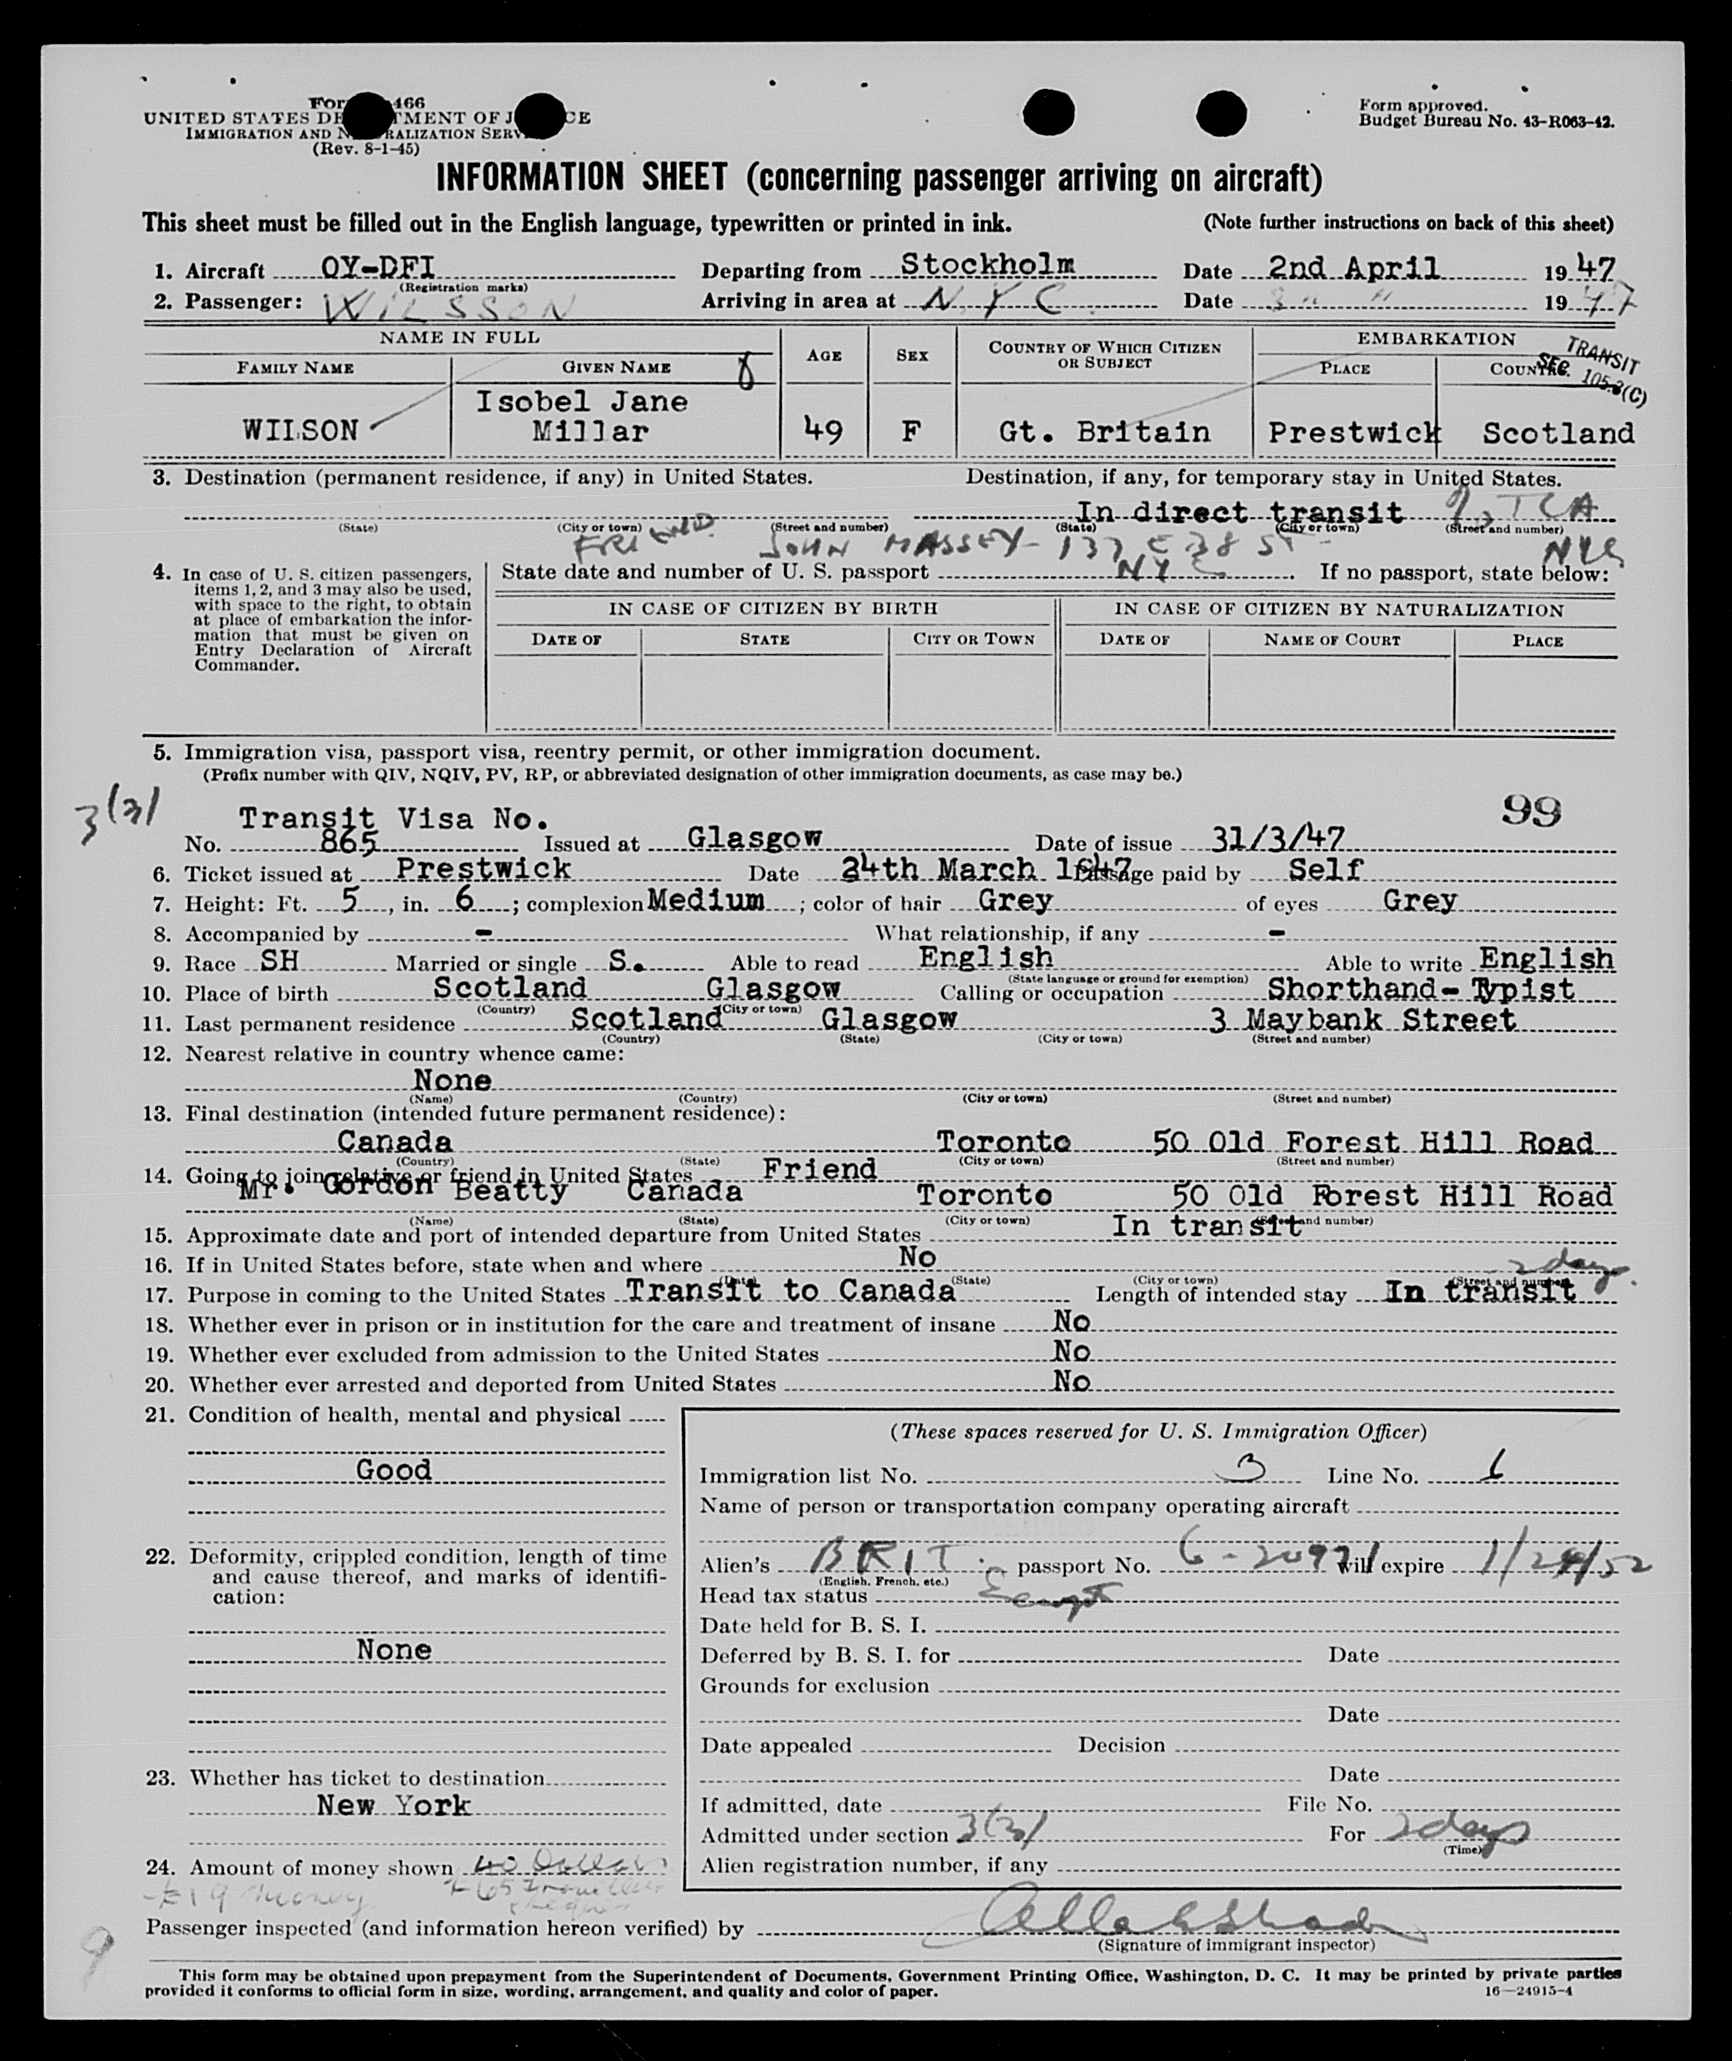 Form 466
UNITED STATES DEPARTMENT OF JUSTICE
IMMIGRATION AND NATURALIZATION SERVICE
(Rev. 8-1-45)
Form approved.
Budget Bureau No. 43-R063-42.
INFORMATION SHEET (concerning passenger arriving on aircraft)
This sheet must be filled out in the English language, typewritten or printed in ink. (Note further instructions on back of this sheet)
1. Aircraft OY-DFI Departing from Stockholm Date 2nd April 1947
(Registration marks)
2. Passenger: WILSSON Arriving in area at N.Y.C. Date 3 " " 1947
NAME IN FULL AGE SEX COUNTRY OF WHICH CITIZEN OR SUBJECT EMBARKATION
FAMILY NAME GIVEN NAME 8 PLACE COUNTRY
TRANSIT
SEC. 105.3(C)
WILSON Isobel Jane Millar 49 F Gt. Britain Prestwick Scotland
3. Destination (permanent residence, if any) in United States. Destination, if any, for temporary stay in United States.
In direct transit TCA
(State) (City or town) (Street and number) (State) (City or town) (Street and number)
FRIEND JOHN MASSEY - 137 E 38 ST - NYC
4. In case of U. S. citizen passengers, items 1, 2, and 3 may also be used, with space to the right, to obtain at place of embarkation the information that must be given on Entry Declaration of Aircraft Commander.
State date and number of U. S. passport If no passport, state below:
IN CASE OF CITIZEN BY BIRTH IN CASE OF CITIZEN BY NATURALIZATION
DATE OF STATE CITY OR TOWN DATE OF NAME OF COURT PLACE
5. Immigration visa, passport visa, reentry permit, or other immigration document.
(Prefix number with QIV, NQIV, PV, RP, or abbreviated designation of other immigration documents, as case may be.)
3(3) 99
Transit Visa No.
No. 865 Issued at Glasgow Date of issue 31/3/47
6. Ticket issued at Prestwick Date 24th March 1947 Passage paid by Self
7. Height: Ft. 5, in. 6; complexion Medium; color of hair Grey of eyes Grey
8. Accompanied by - What relationship, if any -
9. Race SH Married or single S. Able to read English Able to write English
(State language or ground for exemption)
10. Place of birth Scotland Glasgow Calling or occupation Shorthand-Typist
(Country) (City or town)
11. Last permanent residence Scotland Glasgow 3 Maybank Street
(Country) (State) (City or town) (Street and number)
12. Nearest relative in country whence came:
None
(Name) (Country) (City or town) (Street and number)
13. Final destination (intended future permanent residence):
Canada Toronto 50 Old Forest Hill Road
(Country) (State) (City or town) (Street and number)
14. Going to join relative or friend in United States Friend
Mr. Gordon Beatty Canada Toronto 50 Old Forest Hill Road
(Name) (State) (City or town) (Street and number)
15. Approximate date and port of intended departure from United States In transit
16. If in United States before, state when and where No
(Date) (State) (City or town) (Street and number)
2 days.
17. Purpose in coming to the United States Transit to Canada Length of intended stay In transit
18. Whether ever in prison or in institution for the care and treatment of insane No
19. Whether ever excluded from admission to the United States No
20. Whether ever arrested and deported from United States No
21. Condition of health, mental and physical
Good
22. Deformity, crippled condition, length of time and cause thereof, and marks of identification:
None
23. Whether has ticket to destination
New York
24. Amount of money shown 40 Dollars
(These spaces reserved for U. S. Immigration Officer)
Immigration list No. 3 Line No. 6
Name of person or transportation company operating aircraft
Alien's BRIT. passport No. C-20971 will expire 1/24/52
(English, French, etc.)
Head tax status Exempt
Date held for B. S. I.
Deferred by B. S. I. for Date
Grounds for exclusion
Date
Date appealed Decision
Date
If admitted, date File No.
Admitted under section 3(3) For 2 days
(Time)
Alien registration number, if any
Passenger inspected (and information hereon verified) by
(Signature of immigrant inspector)
9
This form may be obtained upon prepayment from the Superintendent of Documents, Government Printing Office, Washington, D. C. It may be printed by private parties
provided it conforms to official form in size, wording, arrangement, and quality and color of paper. 16—24915-4